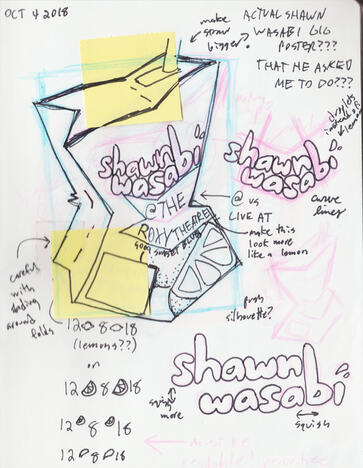 OCT 4 2018
make
straw
bigger?
ACTUAL SHAWN
WASABI GIG
POSTER???
THAT HE ASKED
ME TO DO???
shawn
wasabi
@THE
ROXY THEATRE
shawn
wasabi
curve
lines
@ vs
LIVE AT
make this
look more
like a lemon
careful
with
shading
around
folds
push
silhouette?
12 8 18
(lemons??)
or
12 8 18
12 8 18
12 8 18
shawn
wasabi
squish
more
squish